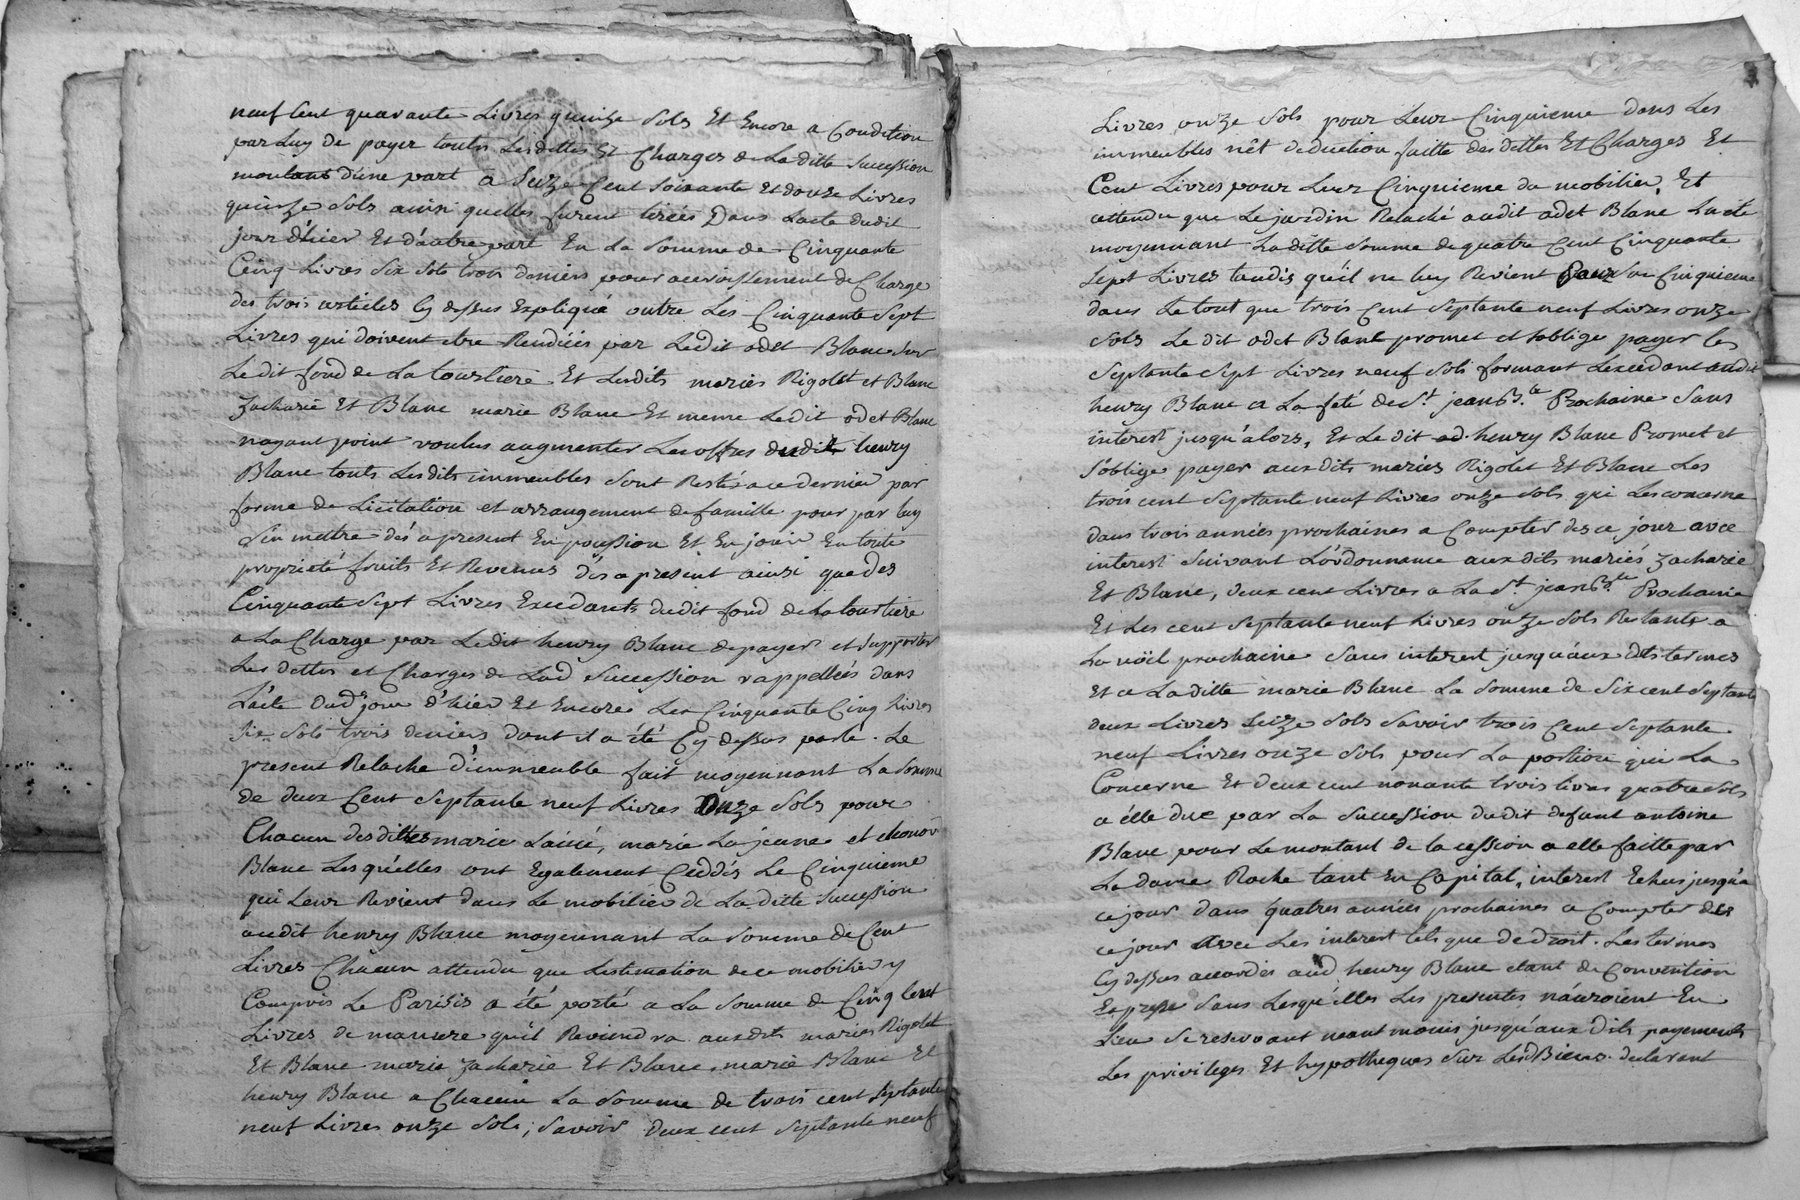 neuf Cent quarante Livres quinze Sols Et Encore a Condition
par Luy de payer toutes Les dettes Et Charges de La ditte Succession
montant d'une part a Seize Cent Soixante Et douze Livres
quinze Sols ainsi quelles furent tirées Dans Lacte dudit
jour d'hier Et d'autre part En La Somme de Cinquante
Cinq Livres Six Sols trois deniers pour accroissement de Charge
des trois articles Cy dessus Expliqué outre Les Cinquante Sept
Livres qui doivent etre Rendües par Ledit odet Blanc Sur
Ledit fond de La tourtiere Et Lesdits mariés Rigolet et Blanc
Zacharie Et Blanc marie Blanc Et meme Ledit odet Blanc
nayant point voulus augmenter Les offres dudit henry
Blanc touts Lesdits immeubles Sont Restés a ce dernier par
forme de Licitation et arrangement de famille pour par luy
S'en mettre dés a present En possession Et En jouir En toute
proprieté fruits Et Revenus dés a present ainsi que des
Cinquante Sept Livres Excedants dudit fond de La tourtiere
a La Charge par Ledit henry Blanc de payer et Supporter
Les dettes et Charges de Lad Succession rappellées dans
L'acte dud jour d'hier Et Encore Les Cinquante Cinq Livres
Six Sols trois deniers dont il a été Cy dessus parlé. Le
present Relache d'immeuble fait moyennant La Somme
de deux Cent Septante neuf Livres Onze Sols pour
Chacun desdittes marie Lainé, marie La jeune et
Blanc Lesquelles ont Egalement Ceddés Le Cinquieme
qui Leur Revient dans Le mobilier de La ditte Succession
audit henry Blanc moyennant La Somme de Cent
Livres Chacun attendu que Lestimation de ce mobilier y
Compris Le Parisis a été porté a La Somme de Cinq Cent
Livres de maniere qu'il Reviendra auxdits mariés Rigolet
Et Blanc marie Zacharie Et Blanc, marie Blanc Et
henry Blanc a Chacun La Somme de trois cent Septante
neuf Livres onze Sols, Savoir deux cent Septante neuf
Livres onze Sols pour Leur Cinquieme dans Les
immeubles nêt deduction faitte des dettes Et Charges Et
Cent Livres pour Leur Cinquieme du mobilier, Et
attendu que Le jardin Relaché audit odet Blanc La été
moyennant La ditte Somme de quatre Cent Cinquante
Sept Livres tandis qu'il ne luy Revient Pour Son Cinquieme
dans Le tout que trois Cent Septante neuf Livres onze
Sols Le dit odet Blanc promet et Soblige payer les
Septante Sept Livres neuf Sols formant Lexcedant audit
henry Blanc a La feté de St jean Bte Prochaine Sans
interest jusqu'alors, Et Le dit henry Blanc Promet et
S'oblige payer auxdits mariés Rigolet Et Blanc Les
trois cent Septante neuf Livres onze Sols qui Les concerne
dans trois années prochaines a Compter de ce jour avec
interest Suivant Lordonnance aux dits mariés Zacharie
Et Blanc, deux cent Livres a La St jean Bte Prochaine
Et Les cent Septante neuf Livres onze Sols Restants a
La nöel prochaine Sans interest jusqu'aux dits termes
Et a La ditte marie Blanc La Somme de Six cent Septante
deux Livres Seize Sols Savoir trois Cent Septante
neuf Livres onze Sols pour La portion qui La
Concerne Et deux cent nonante trois livres quatre Sols
a élle düe par La Succession dudit defunt antoine
Blanc pour Le montant de la cession a elle faitte par
La dame Roche tant En Capital, interest Echus jusqu'a
ce jour dans quatres années prochaines a Compter de
ce jour avec Les interest tels que de droit. Les termes
Cy dessus accordés aud henry Blanc etant de Convention
Expresse Sans Lesquelles Les presentes n'auroient Eu
Lieu Se reservant neantmoins jusqu'aux dits payements
Les privileges Et hypotheques Sur Lesd Biens declarant